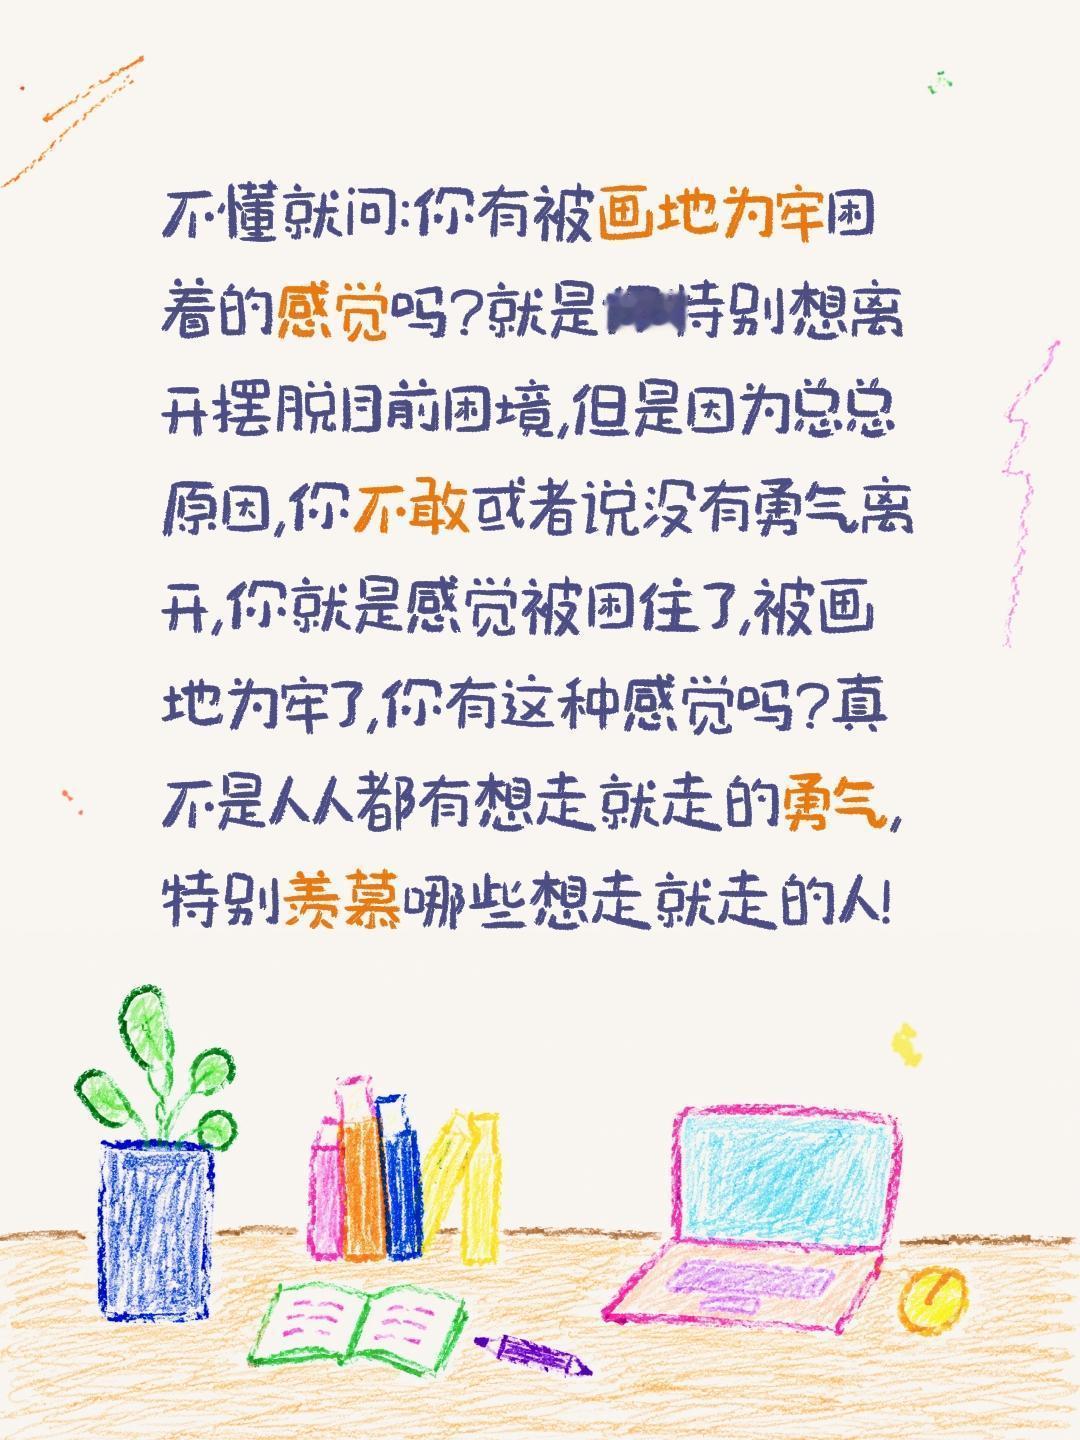 不懂就问:你有被画地为牢困
着的感觉吗?就是特别想离
开摆脱目前困境,但是因为总总
原因,你不敢或者说没有勇气离
开,你就是感觉被困住了,被画
地为牢了,你有这种感觉吗?真
不是人人都有想走就走的勇气,
特别羡慕哪些想走就走的人!